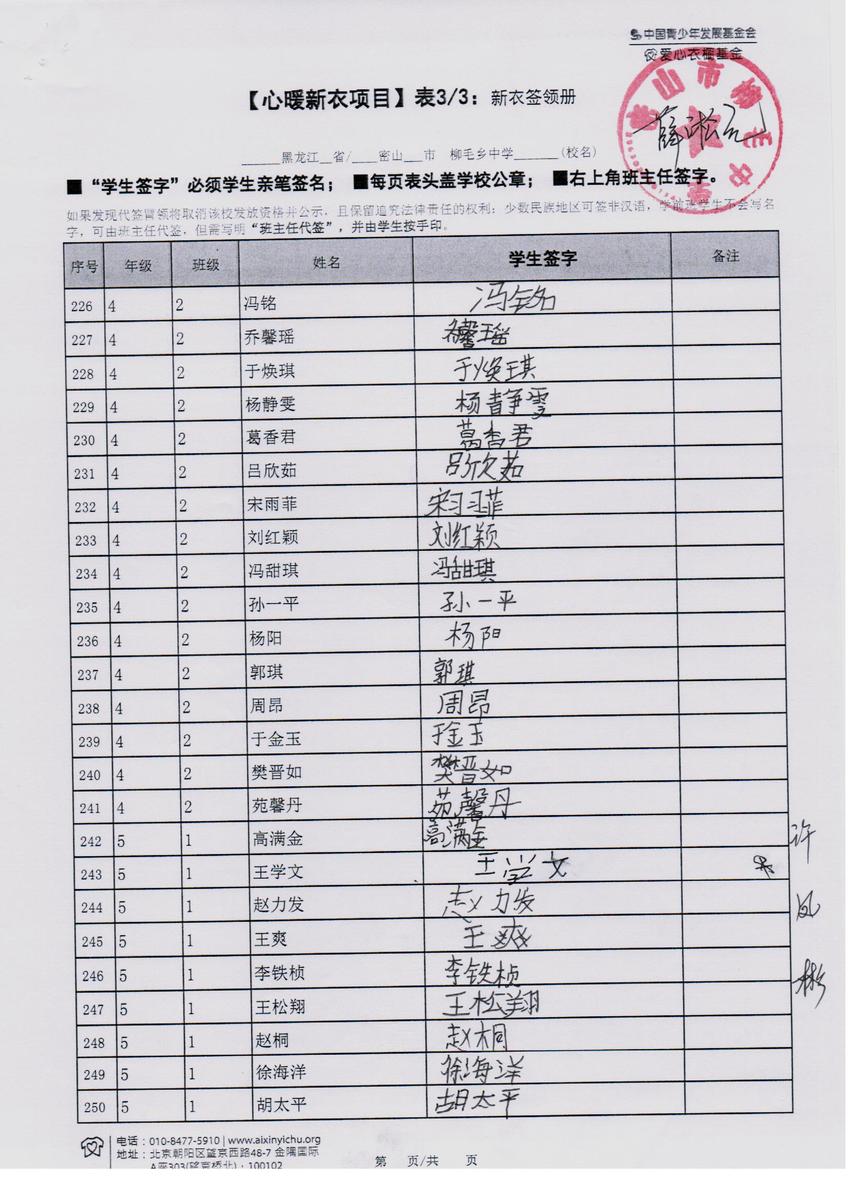 中国青少年发展基金会
爱心衣橱基金
【心暖新衣项目】表3/3：新衣签领册
薛淞
______黑龙江__省/____密山___市 柳毛乡中学_______(校名)
■“学生签字”必须学生亲笔签名； ■每页表头盖学校公章； ■右上角班主任签字。
如果发现代签冒领将取消该校发放资格并公示，且保留追究法律责任的权利；少数民族地区可签非汉语，学前班学生不会写名
字，可由班主任代签，但需写明“班主任代签”，并由学生按手印。
序号 年级 班级 姓名 学生签字 备注
226 4 2 冯铭 冯铭
227 4 2 乔馨瑶 乔馨瑶
228 4 2 于焕琪 于焕琪
229 4 2 杨静雯 杨静雯
230 4 2 葛香君 葛香君
231 4 2 吕欣茹 吕欣茹
232 4 2 宋雨菲 宋雨菲
233 4 2 刘红颖 刘红颖
234 4 2 冯甜琪 冯甜琪
235 4 2 孙一平 孙一平
236 4 2 杨阳 杨阳
237 4 2 郭琪 郭琪
238 4 2 周昂 周昂
239 4 2 于金玉 于金玉
240 4 2 樊晋如 樊晋如
241 4 2 苑馨丹 苑馨丹
242 5 1 高满金 高满金 许
243 5 1 王学文 王学文
244 5 1 赵力发 赵力发 凤
245 5 1 王爽 王爽
246 5 1 李铁桢 李铁桢 彬
247 5 1 王松翔 王松翔
248 5 1 赵桐 赵桐
249 5 1 徐海洋 徐海洋
250 5 1 胡太平 胡太平
电话：010-8477-5910 | www.aixinyichu.org
地址：北京朝阳区望京西路48-7 金隅国际
A座303(望京桥北)・100102
第 页/共 页